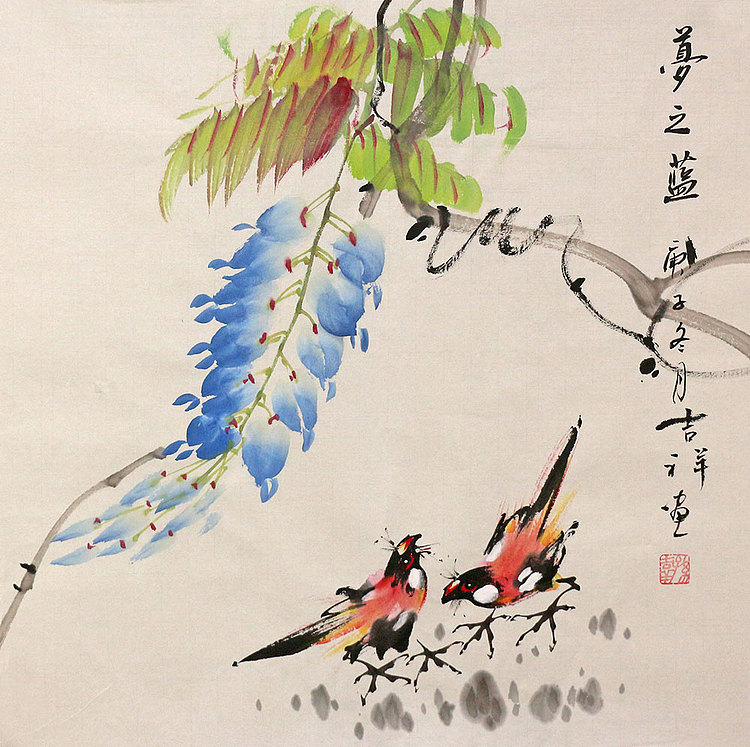 夢之藍庚子冬月吉祥画